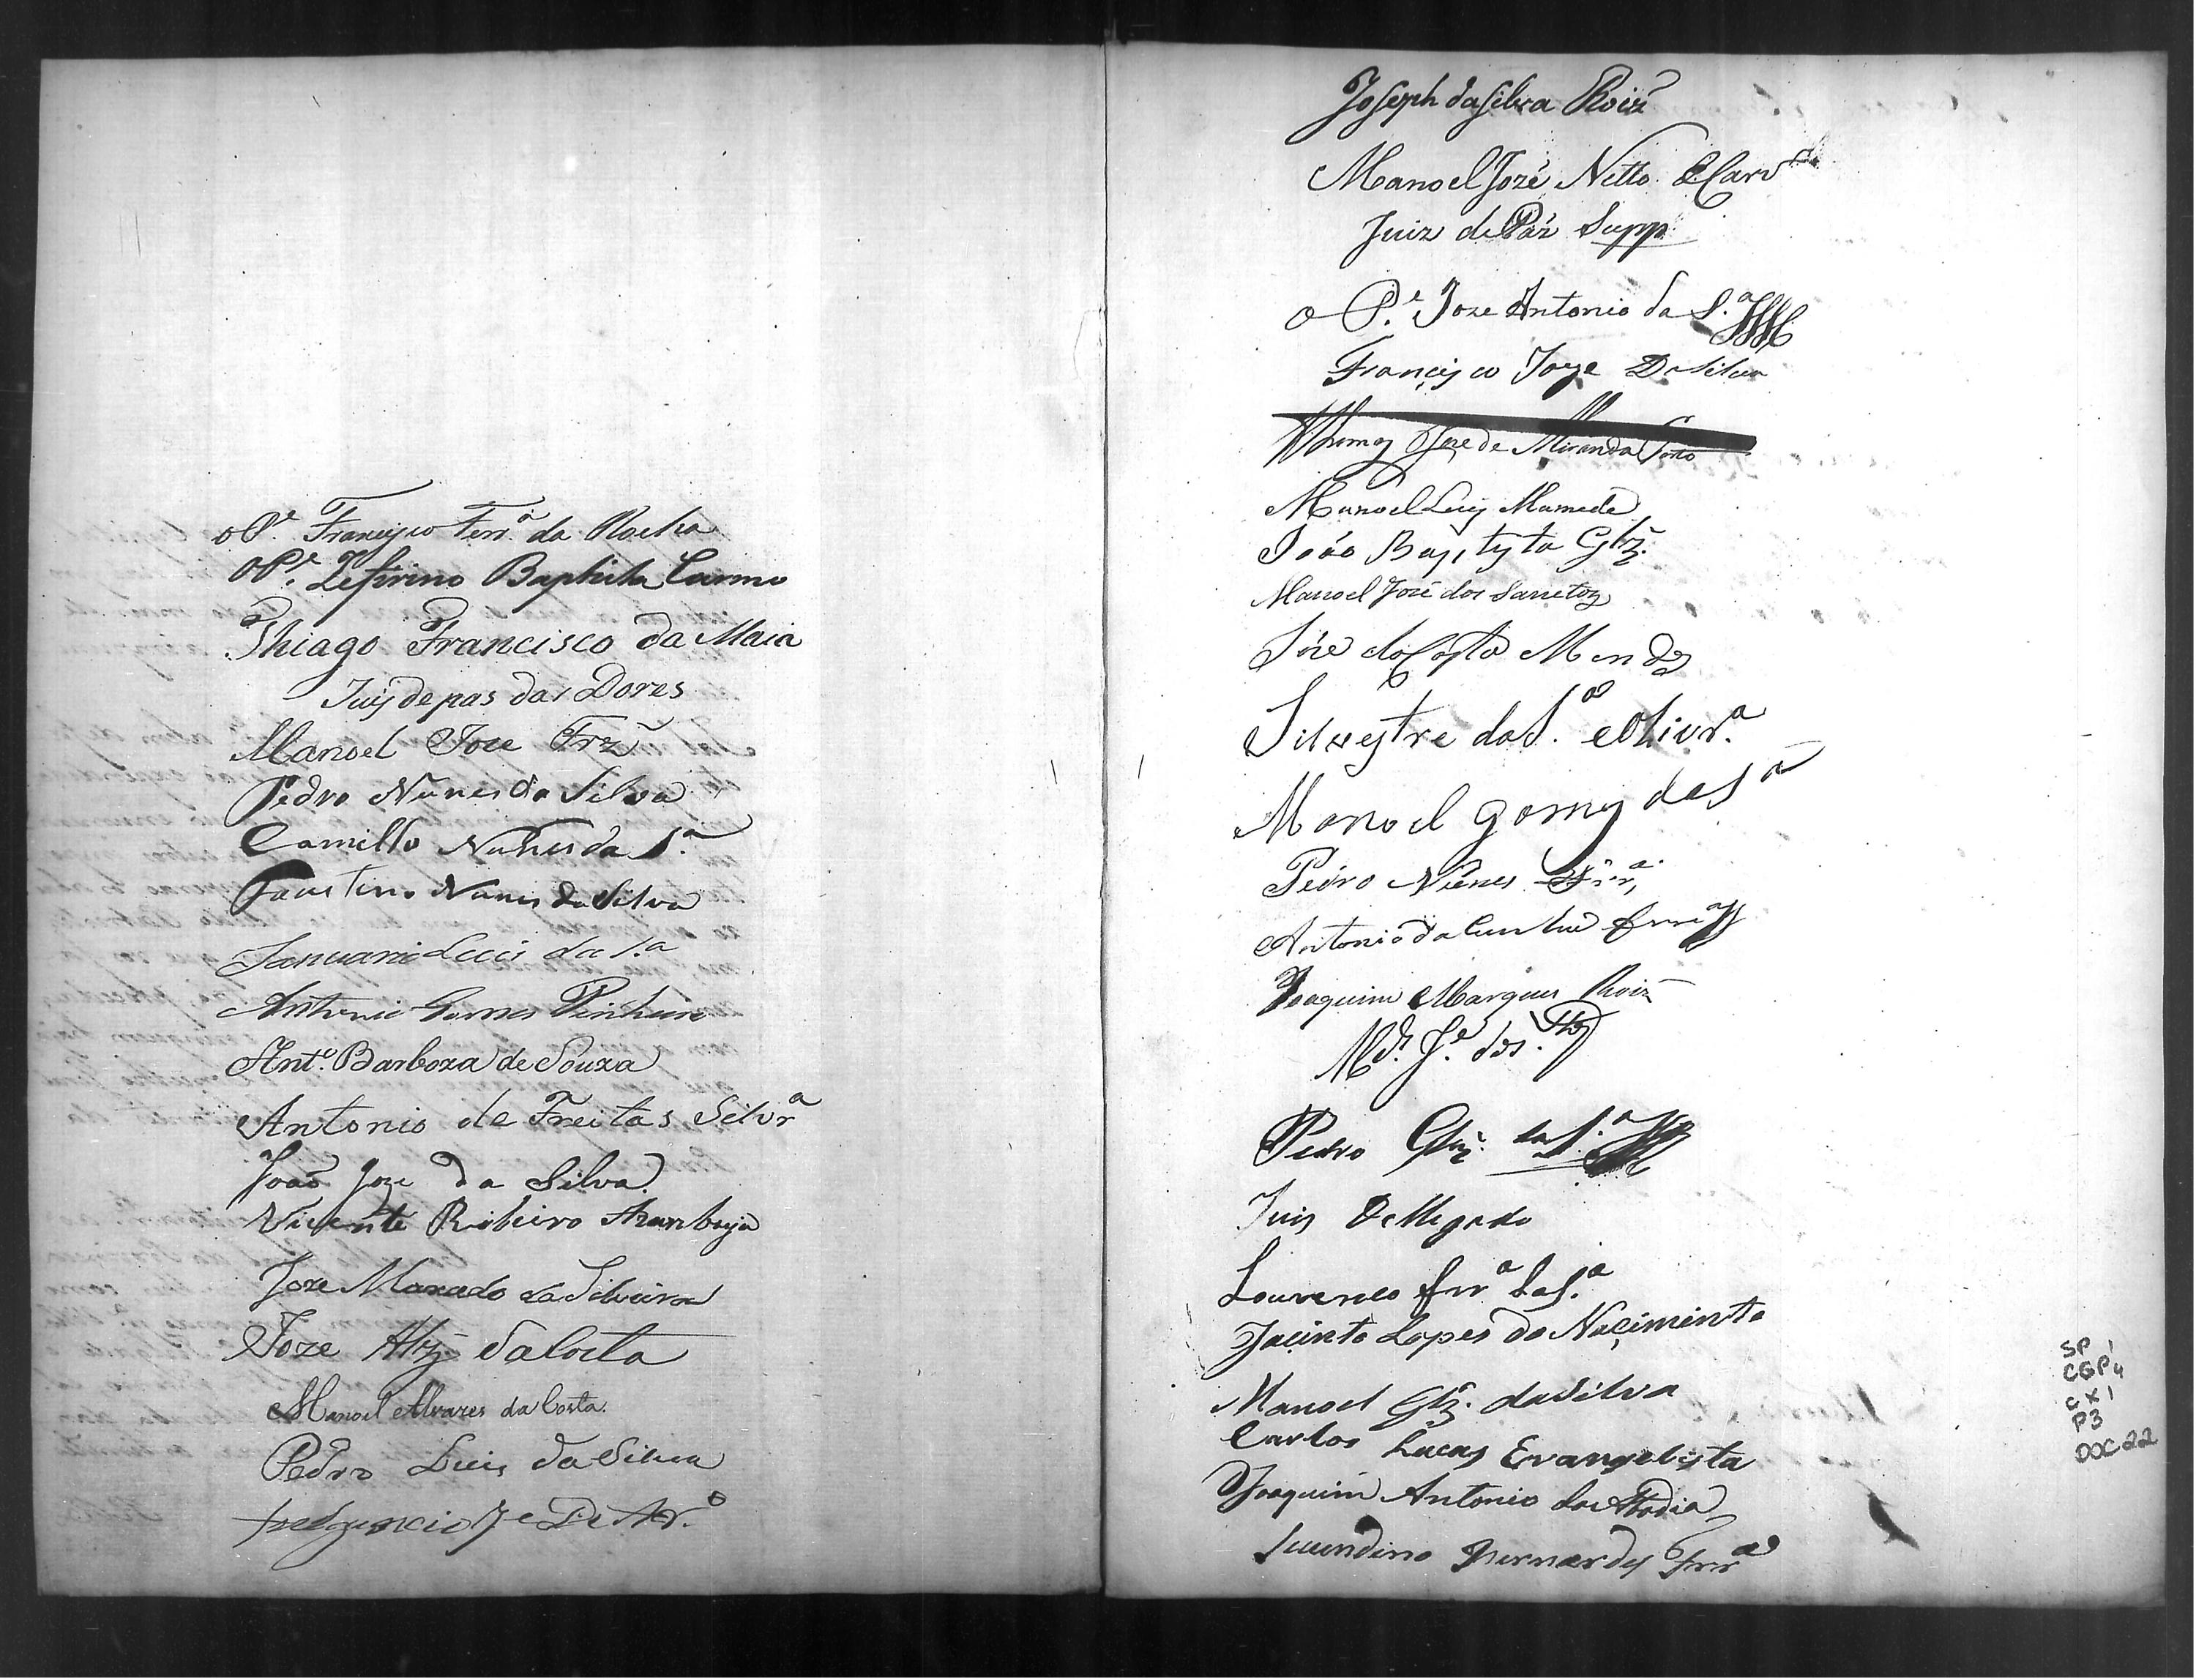 o P.e Francisco Ferr.a da Rocha
O P.e Zeferino Baptista Carmo
Thiago Francisco da Maia
Juis de pas das Dores
Manoel Joze Frz
Pedro Nunes da Silva
Camillo Nunes da S.a
Faustino Nunes da Silva
Januario Luis da S.a
Antonio Gomes Pinheiro
Ant.o Barboza de Souza
Antonio de Freitas Silvr.a
João Joze da Silva
Vicente Ribeiro Azambuja
Joze Maxado da Silveira
Joze Alz da Costa
Manoel Alvares da Costa.
Pedro Luis da Silva
J.e De Ar.o
Joseph da Silva Roiz
Manoel Jozé Netto de Carv.o
Juiz de Páz Supp.
o P.e Joze Antonio da S.a
Francisco Jorge Da Silva
Thomaz Joze de Miranda Porto
Manoel Luis Mamede
João Baptysta Glz.
Manoel José dos Sanctos
Józe da Costa Mendes
Silvestre da S.a e Olivr.a
Manoel Gomes da S.a
Pedro Nunes Ferr.a
Antonio da Cunha Ferr.a
Joaquim Marques Roiz
M.el J.e dos
Pedro Glz. da S.a
Juis Dellegado
Lourenco Frr.a da S.a
Jacinto Lopes do Naçimento
Manoel Glz. da Silva
Carlos Lucas Evangelista
Joaquim Antonio
Secundino Bernardes Frr.a
SP 1
CGP 4
CX 1
P3
DOC 22